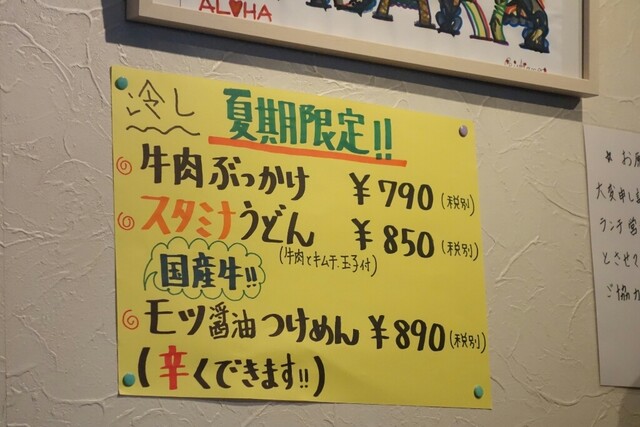 ALOHA
冷し 夏期限定!!
牛肉ぶっかけ ¥790(税別)
スタミナうどん ¥850(税別)
(牛肉とキムチ、玉子付)
国産牛!!
モツ醤油つけめん ¥890(税別)
(辛くできます!!)
大変申し
ランチ営
とさせて
ご協力